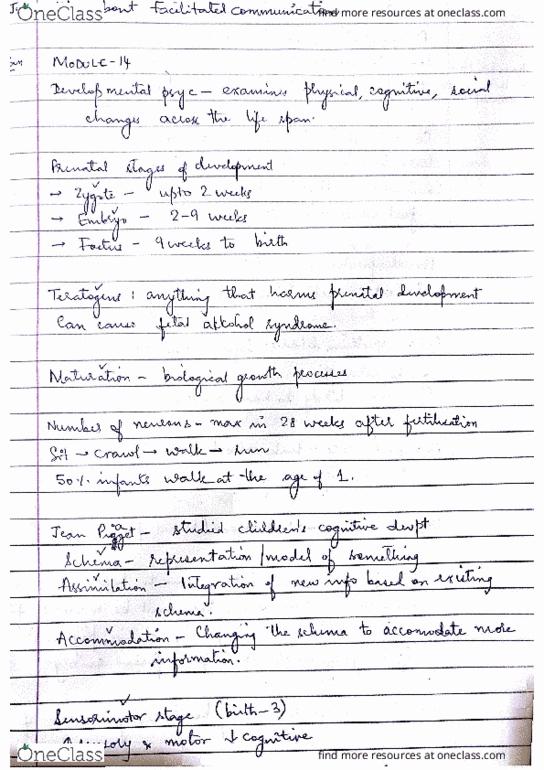 OneClass
find more resources at oneclass.com
about Facilitated Communication
MODULE-14
Developmental psyc - examines physical, cognitive, social
changes across the life span.
Prenatal stages of development
→ Zygote - upto 2 weeks
→ Embryo - 2-9 weeks
→ Foetus - 9 weeks to birth
Teratogens : anything that harms prenital development
Can cause fetal alkohol syndrome.
Maturation - biological growth processes
Number of neurons - max in 28 weeks after fertilisation
Sit → crawl → walk → run
50% infants walk at the age of 1.
Jean - studied children's cognitive devpt
Schema - representation/model of something
Assimilation - Integration of new info based on existing
schema.
Accommodation - Changing the schema to accomodate more
information.
Sensorimotor stage (birth-3)
& motor ↓ cognitive
OneClass
find more resources at oneclass.com